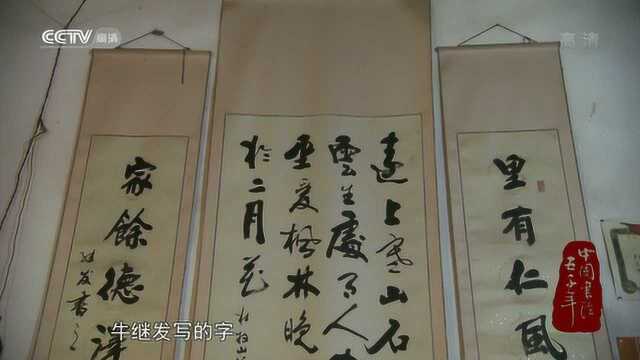 CCTV 高清
高清
里有仁風
遠上寒山石
雲生處有人
坐愛楓林晚
於二月花
家餘德澤
继发书
中国书法
五千年
牛继发写的字